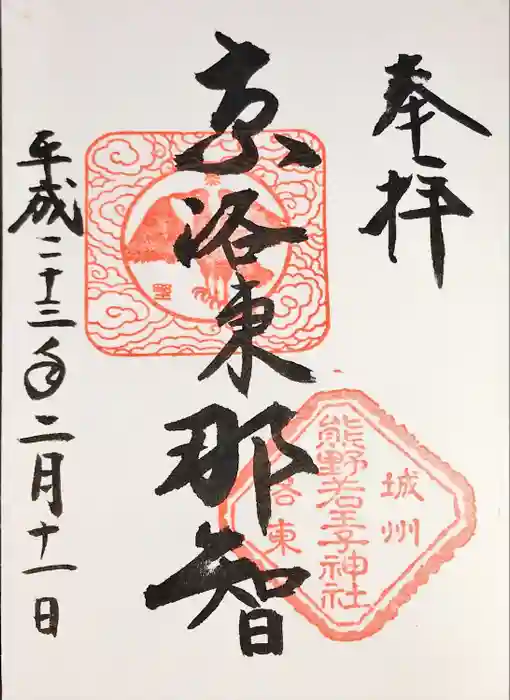 奉拝
京洛東那智
熊野若王子神社
城州
洛東
平成二十三年二月十一日